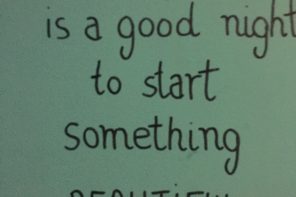 is a good night
to start
something
BEAUTIFUL